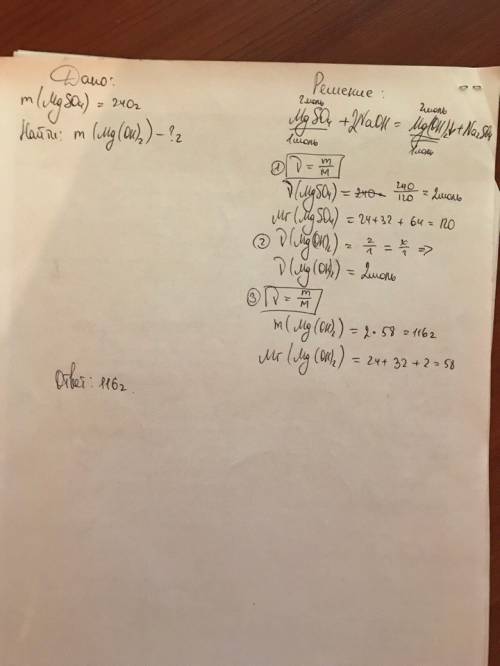 Дано:
m(MgSO₄) = 240г
Найти: m(Mg(OH)₂) – ?г
Решение:
2моль 2моль
MgSO₄ + 2NaOH = Mg(OH)₂↓ + Na₂SO₄
1моль 1моль
① ν = m/M
ν(MgSO₄) = 240/120 = 2моль
Mr(MgSO₄) = 24+32+64 = 120
② ν(Mg(OH)₂) = 2/1 = x/1 =>
ν(Mg(OH)₂) = 2моль
③ ν = m/M
m(Mg(OH)₂) = 2·58 = 116г
Mr(Mg(OH)₂) = 24+32+2 = 58
Ответ: 116г.